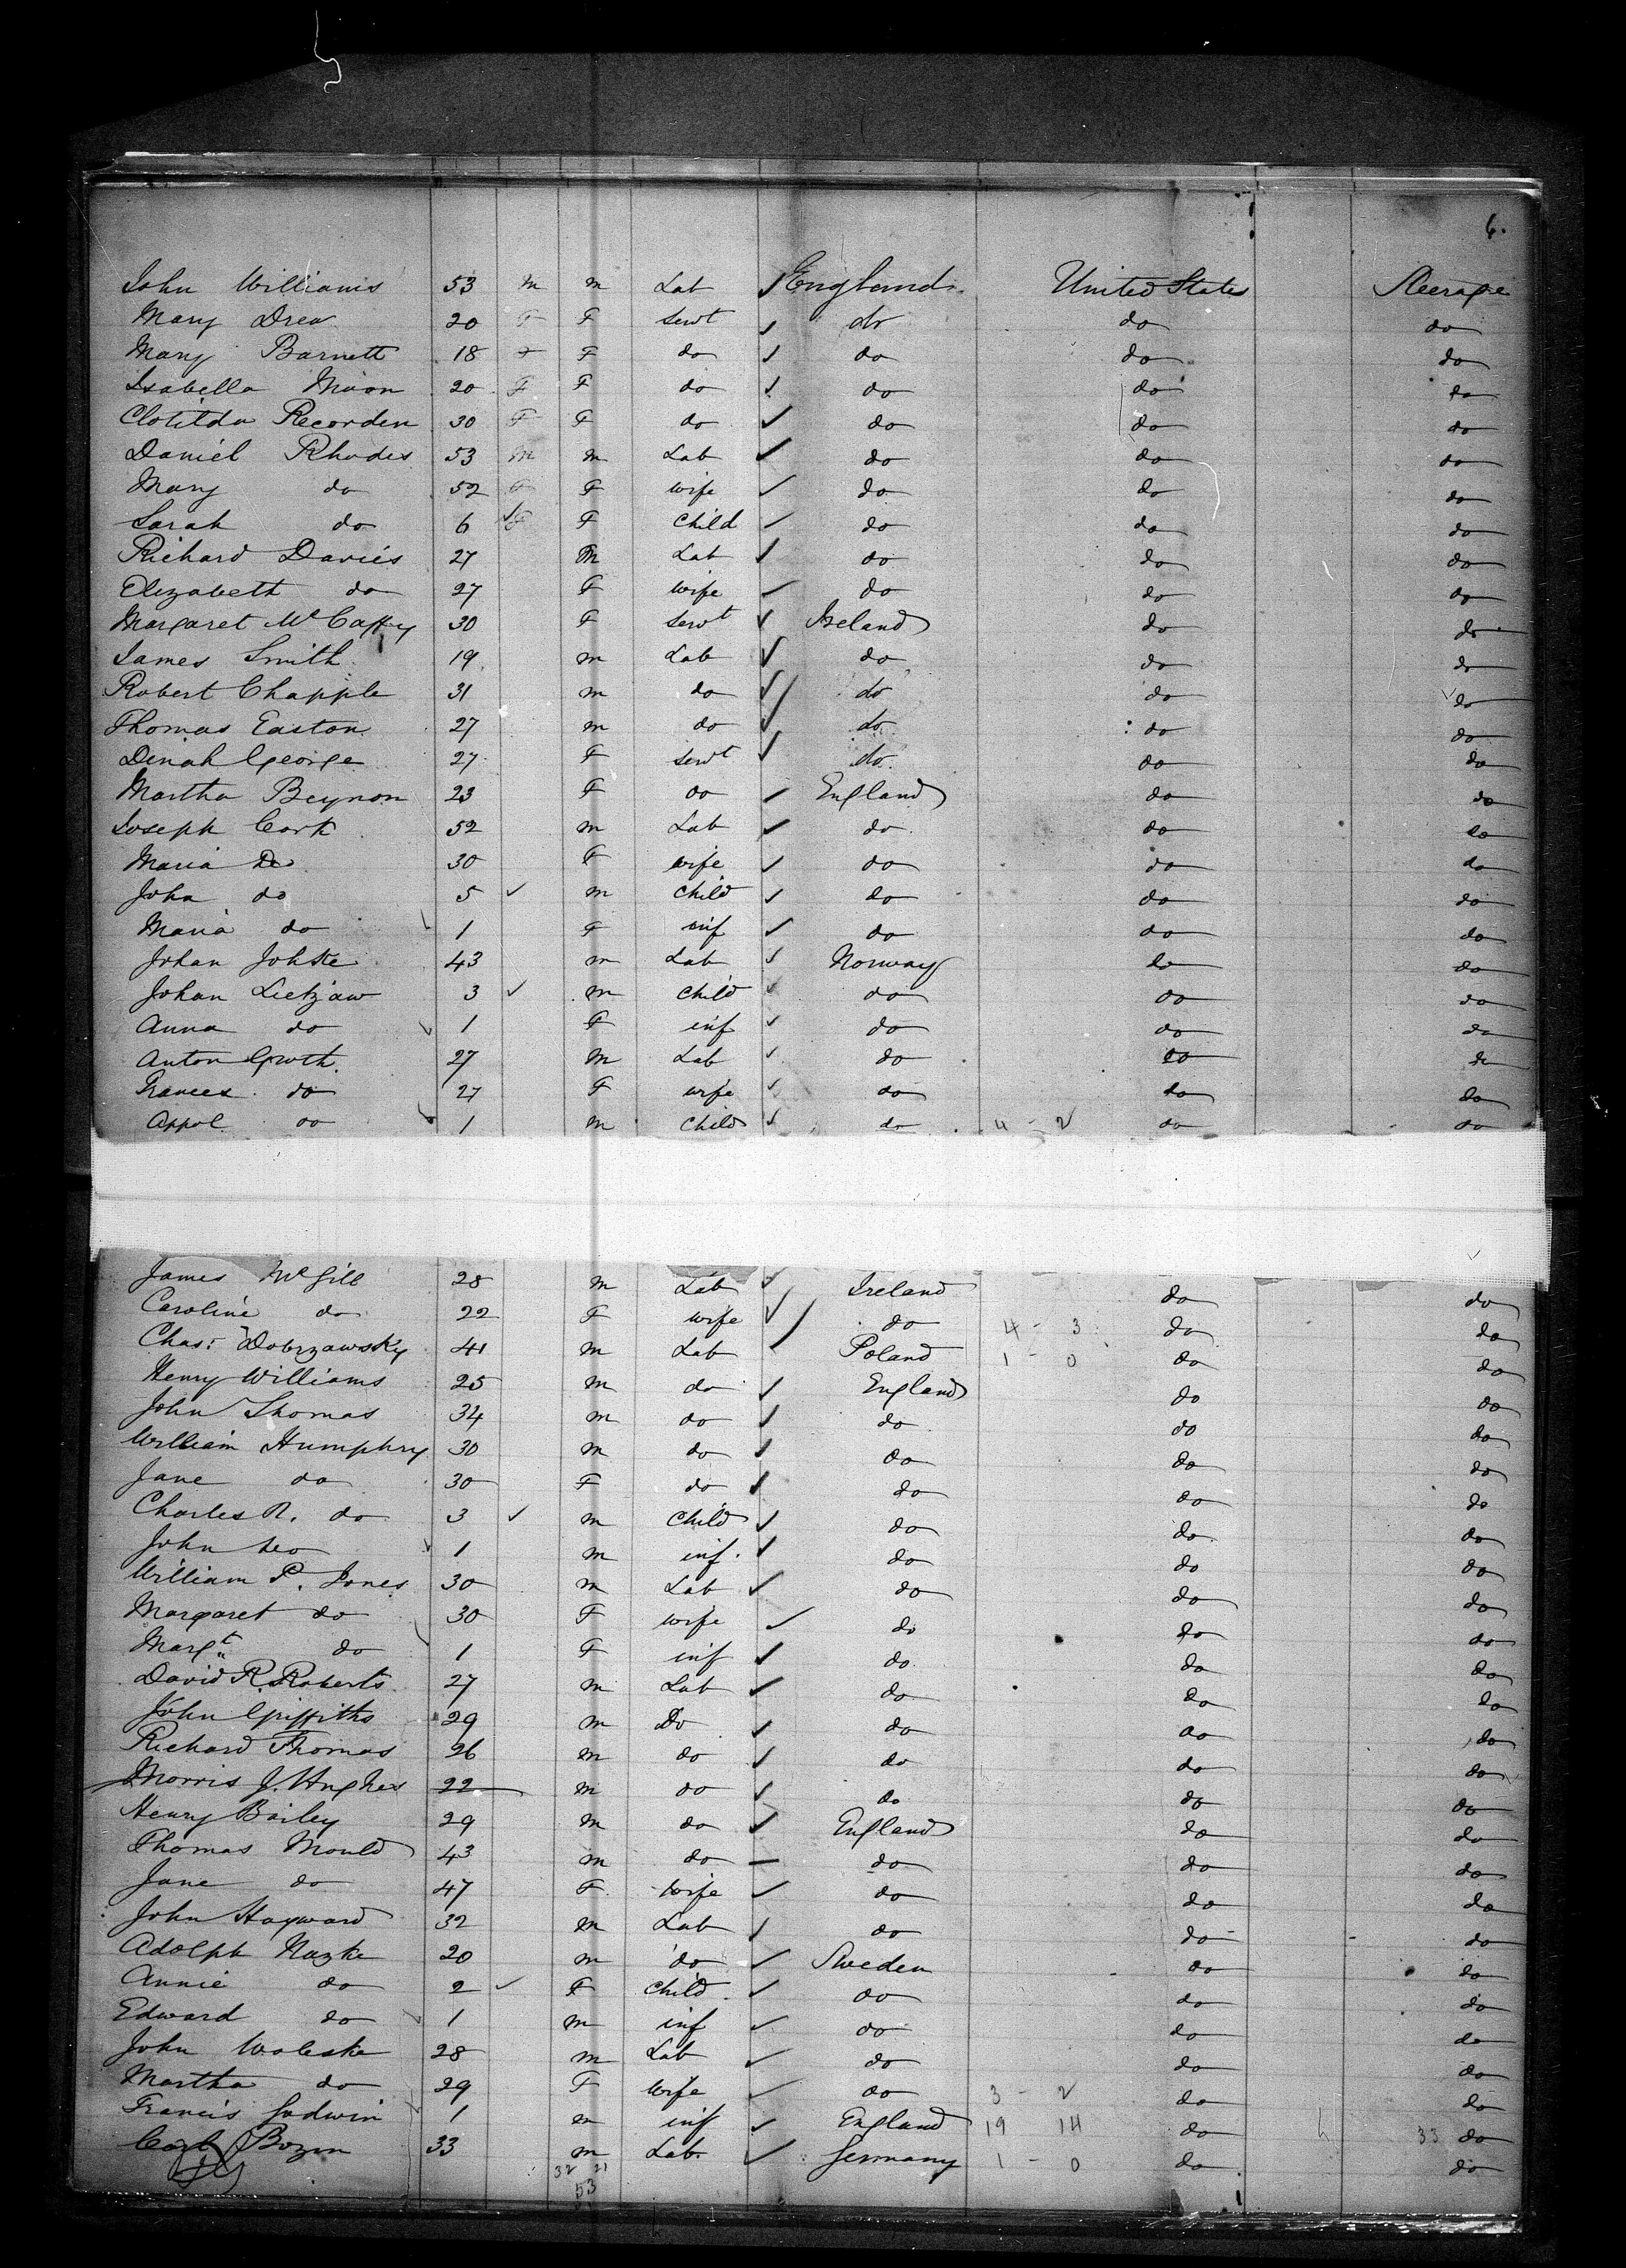 6.
John Williams 53 m m Lab England United States Steerage
Mary Drew 20 F F Servt do do do
Mary Barnett 18 F F do do do do
Isabella Moon 20 F F do do do do
Clotilda Recorden 30 F F do do do do
Daniel Rhodes 53 m m Lab do do do
Mary do 52 F F wife do do do
Sarah do 6 F F child do do do
Richard Davies 27 m Lab do do do
Elizabeth do 27 F wife do do do
Margaret McCaffy 30 F Servt Ireland do do
James Smith 19 m Lab do do do
Robert Chapple 31 m do do do do
Thomas Easton 27 m do do do do
Dinah George 27 F servt do do do
Martha Beynon 23 F do England do do
Joseph Cork 52 m Lab do do do
Maria Do 30 F wife do do do
John do 5 m child do do do
Maria do 1 F inf do do do
Johan Johste 43 m Lab Norway do do
Johan Lietzaw 3 m child do do do
Anna do 1 F inf do do do
Anton Groth 27 m Lab do do do
Frances do 27 F wife do do do
Appol do 1 m child do 4 - 2 do do
James McGill 28 m Lab Ireland do do
Caroline do 22 F wife do 4 - 3 do do
Chas: Dobrzawsky 41 m Lab Poland 1 - 0 do do
Henry Williams 25 m do England do do
John Thomas 34 m do do do do
William Humphry 30 m do do do do
Jane do 30 F do do do do
Charles R. do 3 m child do do do
John do 1 m inf. do do do
William P. Jones 30 m Lab do do do
Margaret do 30 F wife do do do
Margt do 1 F inf do do do
David R. Roberts 27 m Lab do do do
John Griffiths 29 m Do do do do
Richard Thomas 26 m do do do do
Morris J. Hughes 22 m do do do do
Henry Bailey 29 m do England do do
Thomas Mould 43 m do do do do
Jane do 47 F wife do do do
John Hayward 32 m Lab do do do
Adolph Nazke 20 m do Sweden do do
Annie do 2 F child do do do
Edward do 1 m inf do do do
John Woleske 28 m Lab do do do
Martha do 29 F wife do 3 - 2 do do
Francis Godwin 1 m inf England 19 14 do 33 do
Carl Bozm 33 m Lab. Germany 1 - 0 do do
32 21
53